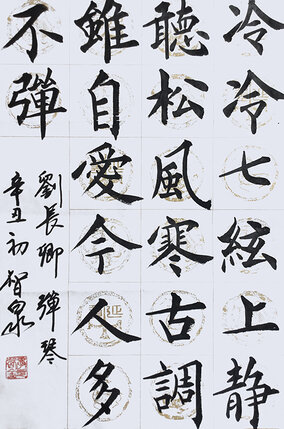 冷冷七絃上靜
聽松風寒古調
雖自愛今人多
不彈
劉長卿 彈琴
辛丑初 智泉